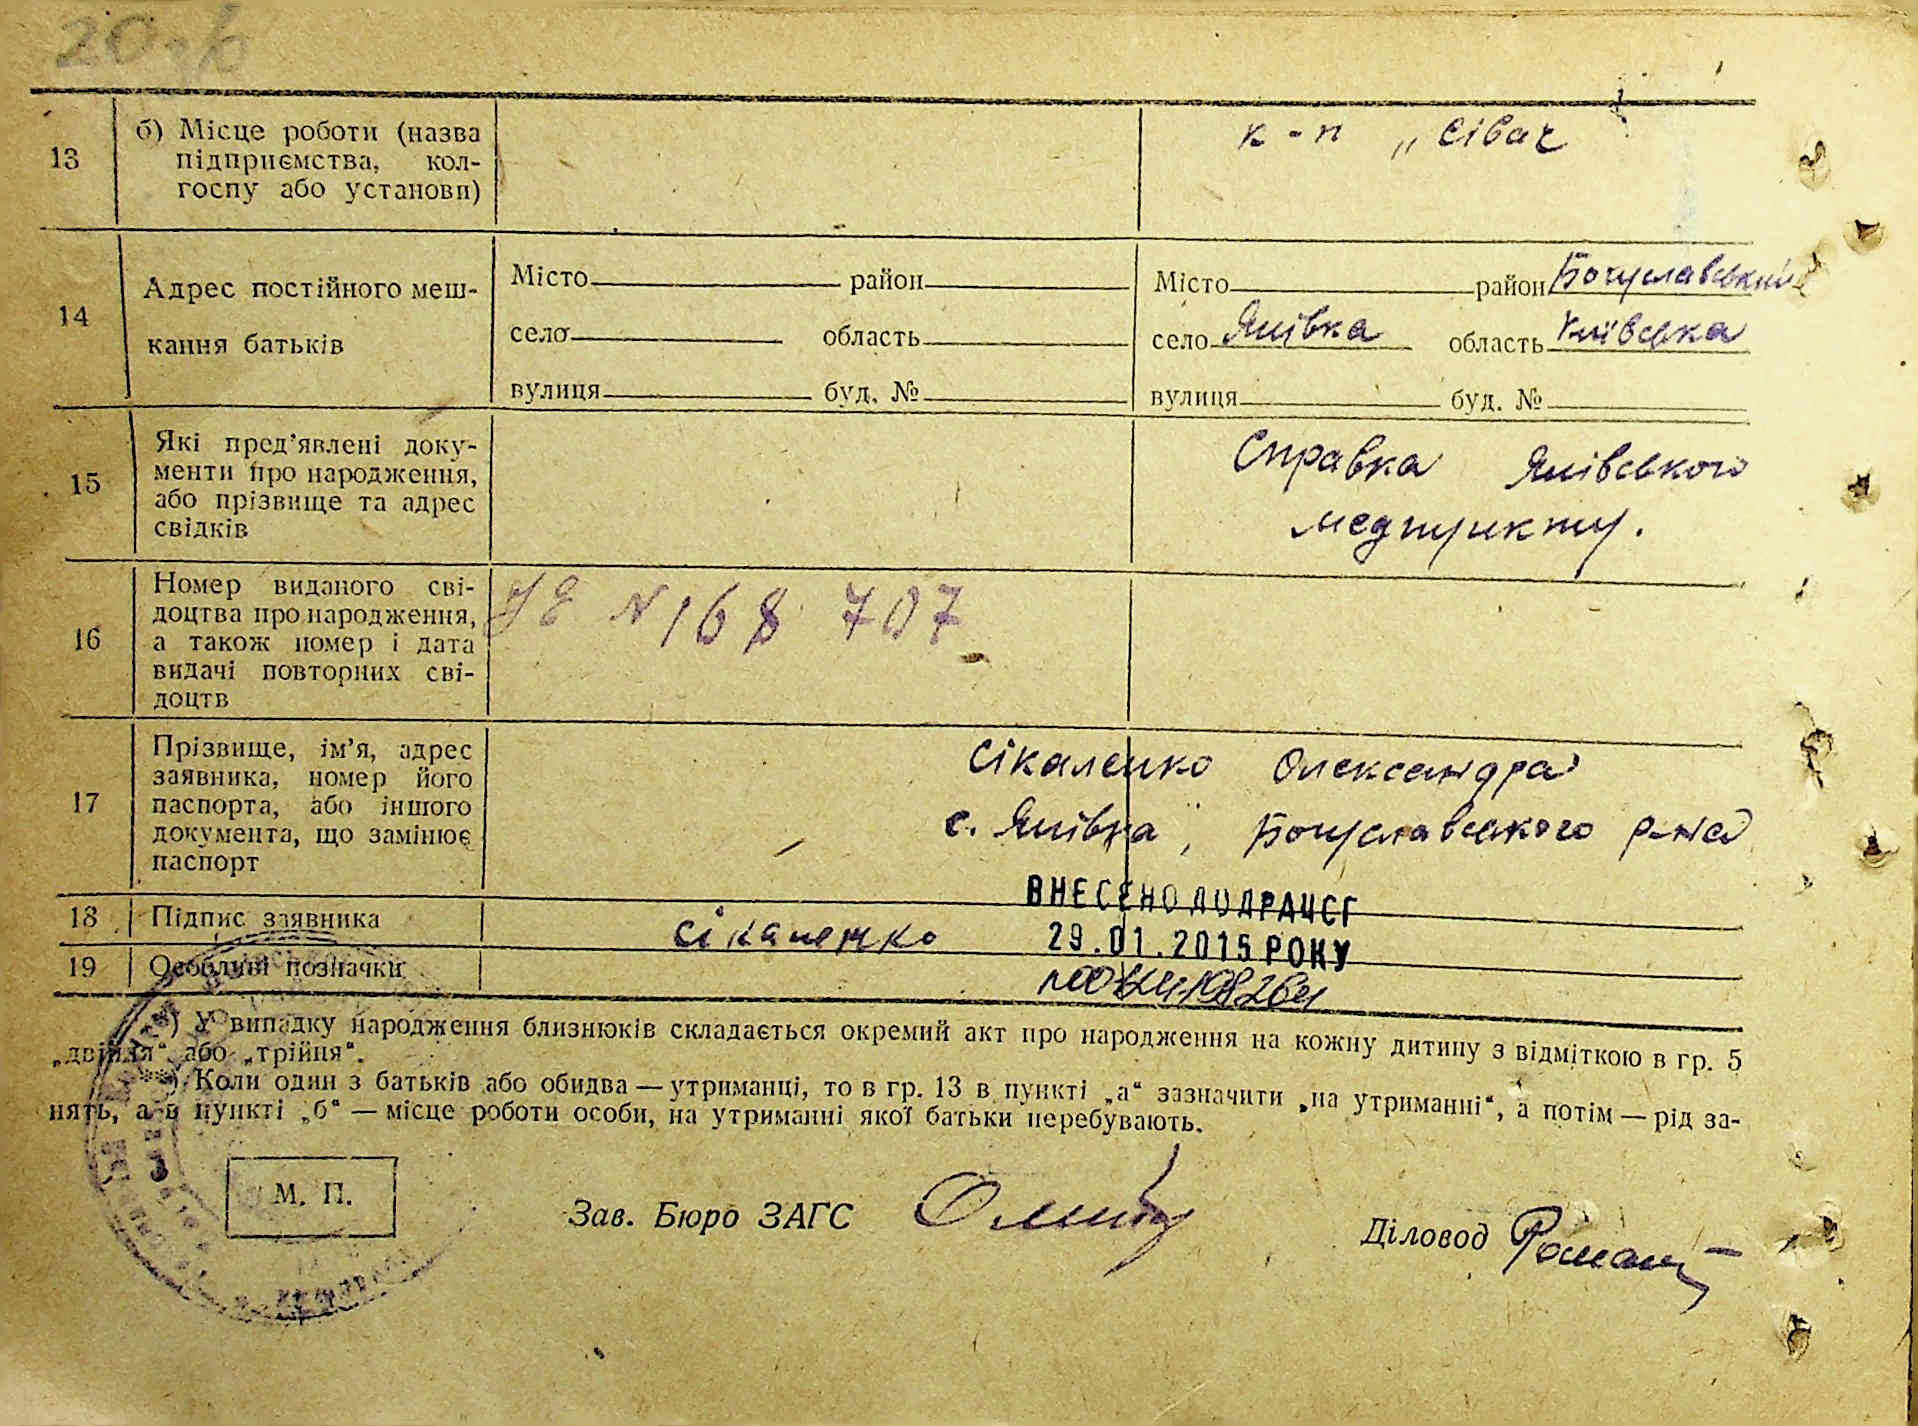 20 зв
13
б) Місце роботи (назва
підприємства, кол-
госпу або установи)
к-п „Сівач
14
Адрес постійного меш-
кання батьків
Місто район
село область
вулиця буд. №
Місто район Богуславський
село Яцівка область Київська
вулиця буд. №
15
Які пред’явлені доку-
менти про народження,
або прізвище та адрес
свідків
Справка Яцівського
медпункту.
16
Номер виданого сві-
доцтва про народження,
а також номер і дата
видачі повторних сві-
доцтв
N 168 707
17
Прізвище, ім’я, адрес
заявника, номер його
паспорта, або іншого
документа, що замінює
паспорт
Сікаленко Олександра
с. Яцівка, Богуславського р-на
18
Підпис заявника
Сікаленко
ВНЕСЕНО ДО ДРАЦСГ
29.01.2015 РОКУ
19
Особливі позначки
*) У випадку народження близнюків складається окремий акт про народження на кожну дитину з відміткою в гр. 5
„двійня“ або „трійня“.
**) Коли один з батьків або обидва — утриманці, то в гр. 13 в пункті „а“ зазначити „на утриманні“, а потім — рід за-
нять, а в пункті „б“ — місце роботи особи, на утриманні якої батьки перебувають.
М. П.
Зав. Бюро ЗАГС
Діловод